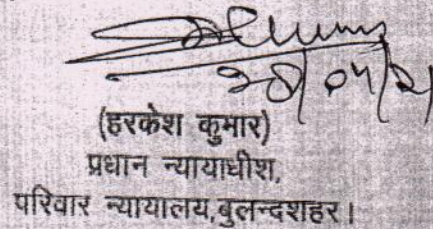 (हरकेश कुमार)
प्रधान न्यायाधीश,
परिवार न्यायालय,बुलन्दशहर।